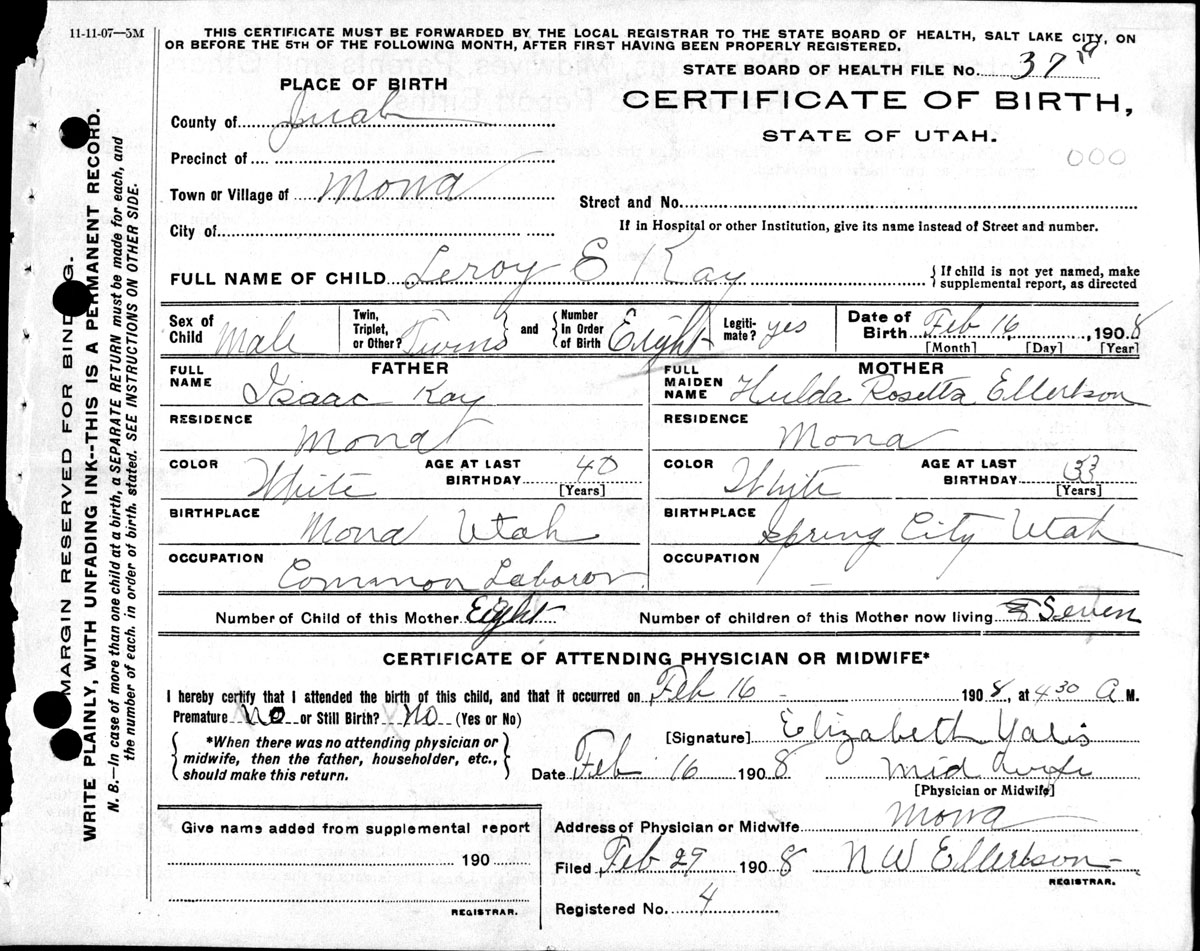 11-11-07—3M
THIS CERTIFICATE MUST BE FORWARDED BY THE LOCAL REGISTRAR TO THE STATE BOARD OF HEALTH, SALT LAKE CITY, ON
OR BEFORE THE 5TH OF THE FOLLOWING MONTH, AFTER FIRST HAVING BEEN PROPERLY REGISTERED.
STATE BOARD OF HEALTH FILE No. 379
PLACE OF BIRTH
CERTIFICATE OF BIRTH,
STATE OF UTAH.
000
County of Juab
Precinct of
Town or Village of Mona
Street and No.
City of
If in Hospital or other Institution, give its name instead of Street and number.
FULL NAME OF CHILD Leroy E Kay
{ If child is not yet named, make
supplemental report, as directed
Sex of Child Male
Twin, Triplet, or Other? Twins
and
Number In Order of Birth Eight
Legiti-mate? yes
Date of Birth Feb 16, 1908
[Month] [Day] [Year]
FATHER
FULL NAME Isaac Kay
RESIDENCE
Mona
COLOR White
AGE AT LAST BIRTHDAY 40
[Years]
BIRTHPLACE
Mona Utah
OCCUPATION
Common Laboror
MOTHER
FULL MAIDEN NAME Hulda Rosetta Ellertson
RESIDENCE
Mona
COLOR White
AGE AT LAST BIRTHDAY 33
[Years]
BIRTHPLACE
Spring City Utah
OCCUPATION
Number of Child of this Mother Eight
Number of children of this Mother now living Seven
CERTIFICATE OF ATTENDING PHYSICIAN OR MIDWIFE*
I hereby certify that I attended the birth of this child, and that it occurred on Feb 16 - 1908, at 4 30 A M.
Premature No or Still Birth? No (Yes or No)
*When there was no attending physician or
midwife, then the father, householder, etc.,
should make this return.
[Signature] Elizabeth Yates
Date Feb 16 1908 Mid wife
[Physician or Midwife]
Give name added from supplemental report
190
REGISTRAR.
Address of Physician or Midwife Mona
Filed Feb 29 1908 N W Ellertson
REGISTRAR.
Registered No. 4
MARGIN RESERVED FOR BINDING.
WRITE PLAINLY, WITH UNFADING INK--THIS IS A PERMANENT RECORD.
N. B.—In case of more than one child at a birth, a SEPARATE RETURN must be made for each, and
the number of each. in order of birth. stated. SEE INSTRUCTIONS ON OTHER SIDE.